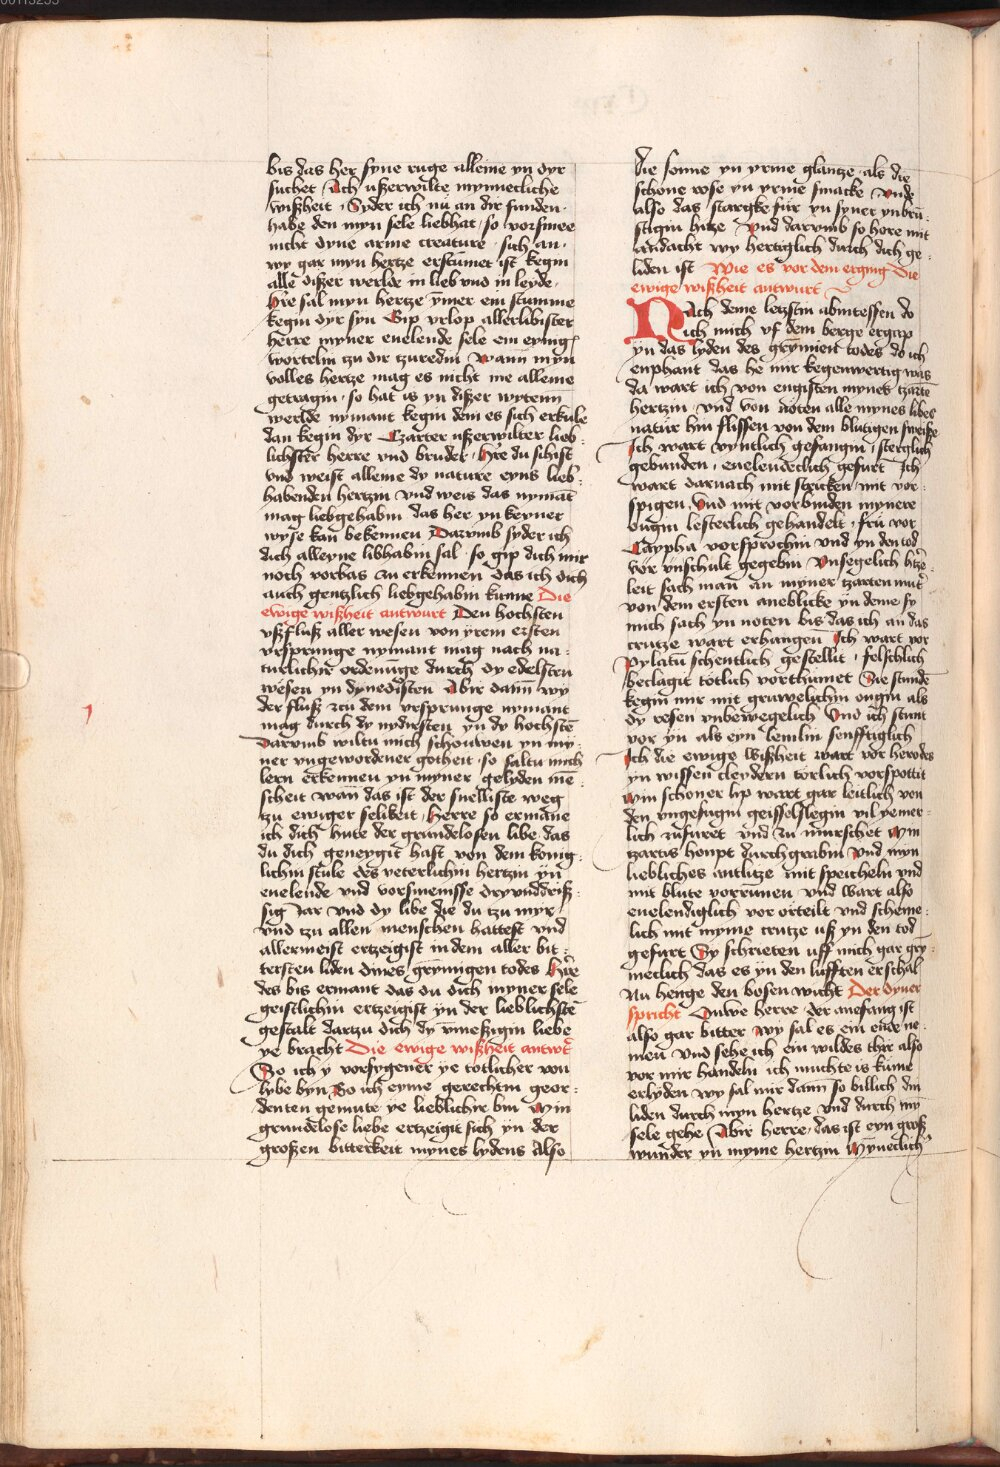 bis das her syne ruge alleine yn dyr
suchet Ach ußerwilte mynnecliche
wißheit Syder ich nu an dir funden
habe den myn sele liebhat so vorsmee
nicht dyne arme creature sich an
wy gar myn hertze erstumet ist kegin
alle dißer werlde in lieb vnd in leyde
Hie sal myn hertze ymer ein stumme
kegin dyr syn Gip vrlop allerlibister
herre myner enelende sele ein eynig
wortelin zu dir tzuredin Wann myn
volles hertze mag es nicht me alleine
getragin so hat is yn dißer wytenn
werlde nymant kegin dem es sich erkule
dan kegin dyr Czarter ußerwilter lieb
lichster herre vnd bruder Hre du sihist
vnd weist alleine dy nature eyns lieb
habenden hertzin vnd weis das nymāt
mag liebgehabin das her yn keyner
wyse kan bekennen Darvmb syder ich
dich alleyne libhabin sal so gip dich mir
noch vorbas zu erkennen das ich dich
auch gentzlich liebgehabin kunne Die
ewige wißheit antwurt Den hochsten
vßfluß aller wesen von yrem ersten
vrsprunge nymant mag nach na
turlichir ordenūge durch dy edelsten
wesen yn dy nedisten Abir dann wy
der fluß zcu dem vrsprunge nymant
mag durch dy nydirsten yn dy hochstē
Darvmb wiltu mich schouwen yn my
ner vngewordener gotheit so saltu mich
lern erkennen yn myner gelyden mē
scheit wan das ist der snelliste weg
zu ewiger selikeit Herre so ermane
ich dich hute der grundelosen libe das
du dich geneygit hast von dem konig
lichin stule des veterlichin hertzin yn
enelende vnd vorsmenisse dryvnddriß
sig Jar vnd dy libe die du tzu myr
vnd tzu allen menschen hattest vnd
allermeist ertzeigist in dem aller bit
tersten liden dines grymigen todes Hre
des bis ermant das du dich myner sele
geistlichin ertzeigist yn der lieblichstē
gestalt dartzu dich dy vnmeßigin liebe
ye bracht Die ewige wißheit antwt
So ich y vorsygener ye totlicher von
lybe byn So ich eyme gerechtin geor
denten gemute ye lieblichir bin Myn
grundelose liebe ertzeigit sich yn der
großen bitterkeit mynes lydens Also
die sonne yn yrme glantze als die
schone rose yn yrme smacke Vnde
also das stargke für yn syner ynbrü
stigin hitze Vnd darvmb so hore mit
andacht wy hertziglich durch dich ge
liden ist Wie es vor dem erging Die
ewige wißheit antwurt
Nach deme letzstin abintessen do
ich mich vf dem berge ergap
yn das lyden des grymien todes do ich
enphant das he mir kegenwertig was
da wart ich von engisten mynes tzarte
hertzin vnd von noten alle mynes libes
natur hin flissen von dem blutigen sweiße
Ich wart vyntlich gefangin sterglich
gebunden enelendeclich gefurt Ich
wart darnach mit stricken mit vor
spigen Vnd mit vorbinden mynere
ougin lesterlich gehandelt fru vor
Caypha vorsprochin vnd yn den tod
vor vnschult gegebin Vnsegelich hitze
leit sach man an myner tzarten mut
von dem ersten aneblicke yn deme sy
mich sach yn noten bis das ich an das
crutze wart erhangen Ich wart vor
Pylatū schentlich gestellit felschlich
beclagit totlich vorthumet Sie stunde
kegin mir mit gruwelichin ougin als
dy resen vnbewegelich Vnd ich stunt
vor yn als eyn lemlin senfftiglich
Ich die ewige wißheit wart vor herodes
yn wissen cleydern torlich vorspottit
Min schoner lip wart gar leitlich von
den vngefugin geisselslegin vil yemer
lich zufuret vnd zu murschet Myn
tzartis houpt durchgrabin Vnd myn
liebliches antlitze mit speicheln vnd
mit blute vorrūnen vnd wart also
enelendiglich vor orteilt vnd scheme
lich mit myme crutze uß yn den tod
gefurt Sy schrieten uff mich gar gry
meclich das es yn den lufften erschal
Nu henge den bosen wicht Der dyner
spricht Ouwe herre der anefang ist
also gar bitter wy sal es ein ende ne
men vnd sehe ich ein wildes thir also
vor mir handeln ich muchte is kume
erlyden wy sal mir dann so billich din
liden durch myn hertze vnd durch my
sele gehe Abir herre das ist eyn groß
wunder yn myme hertzin Myneclich